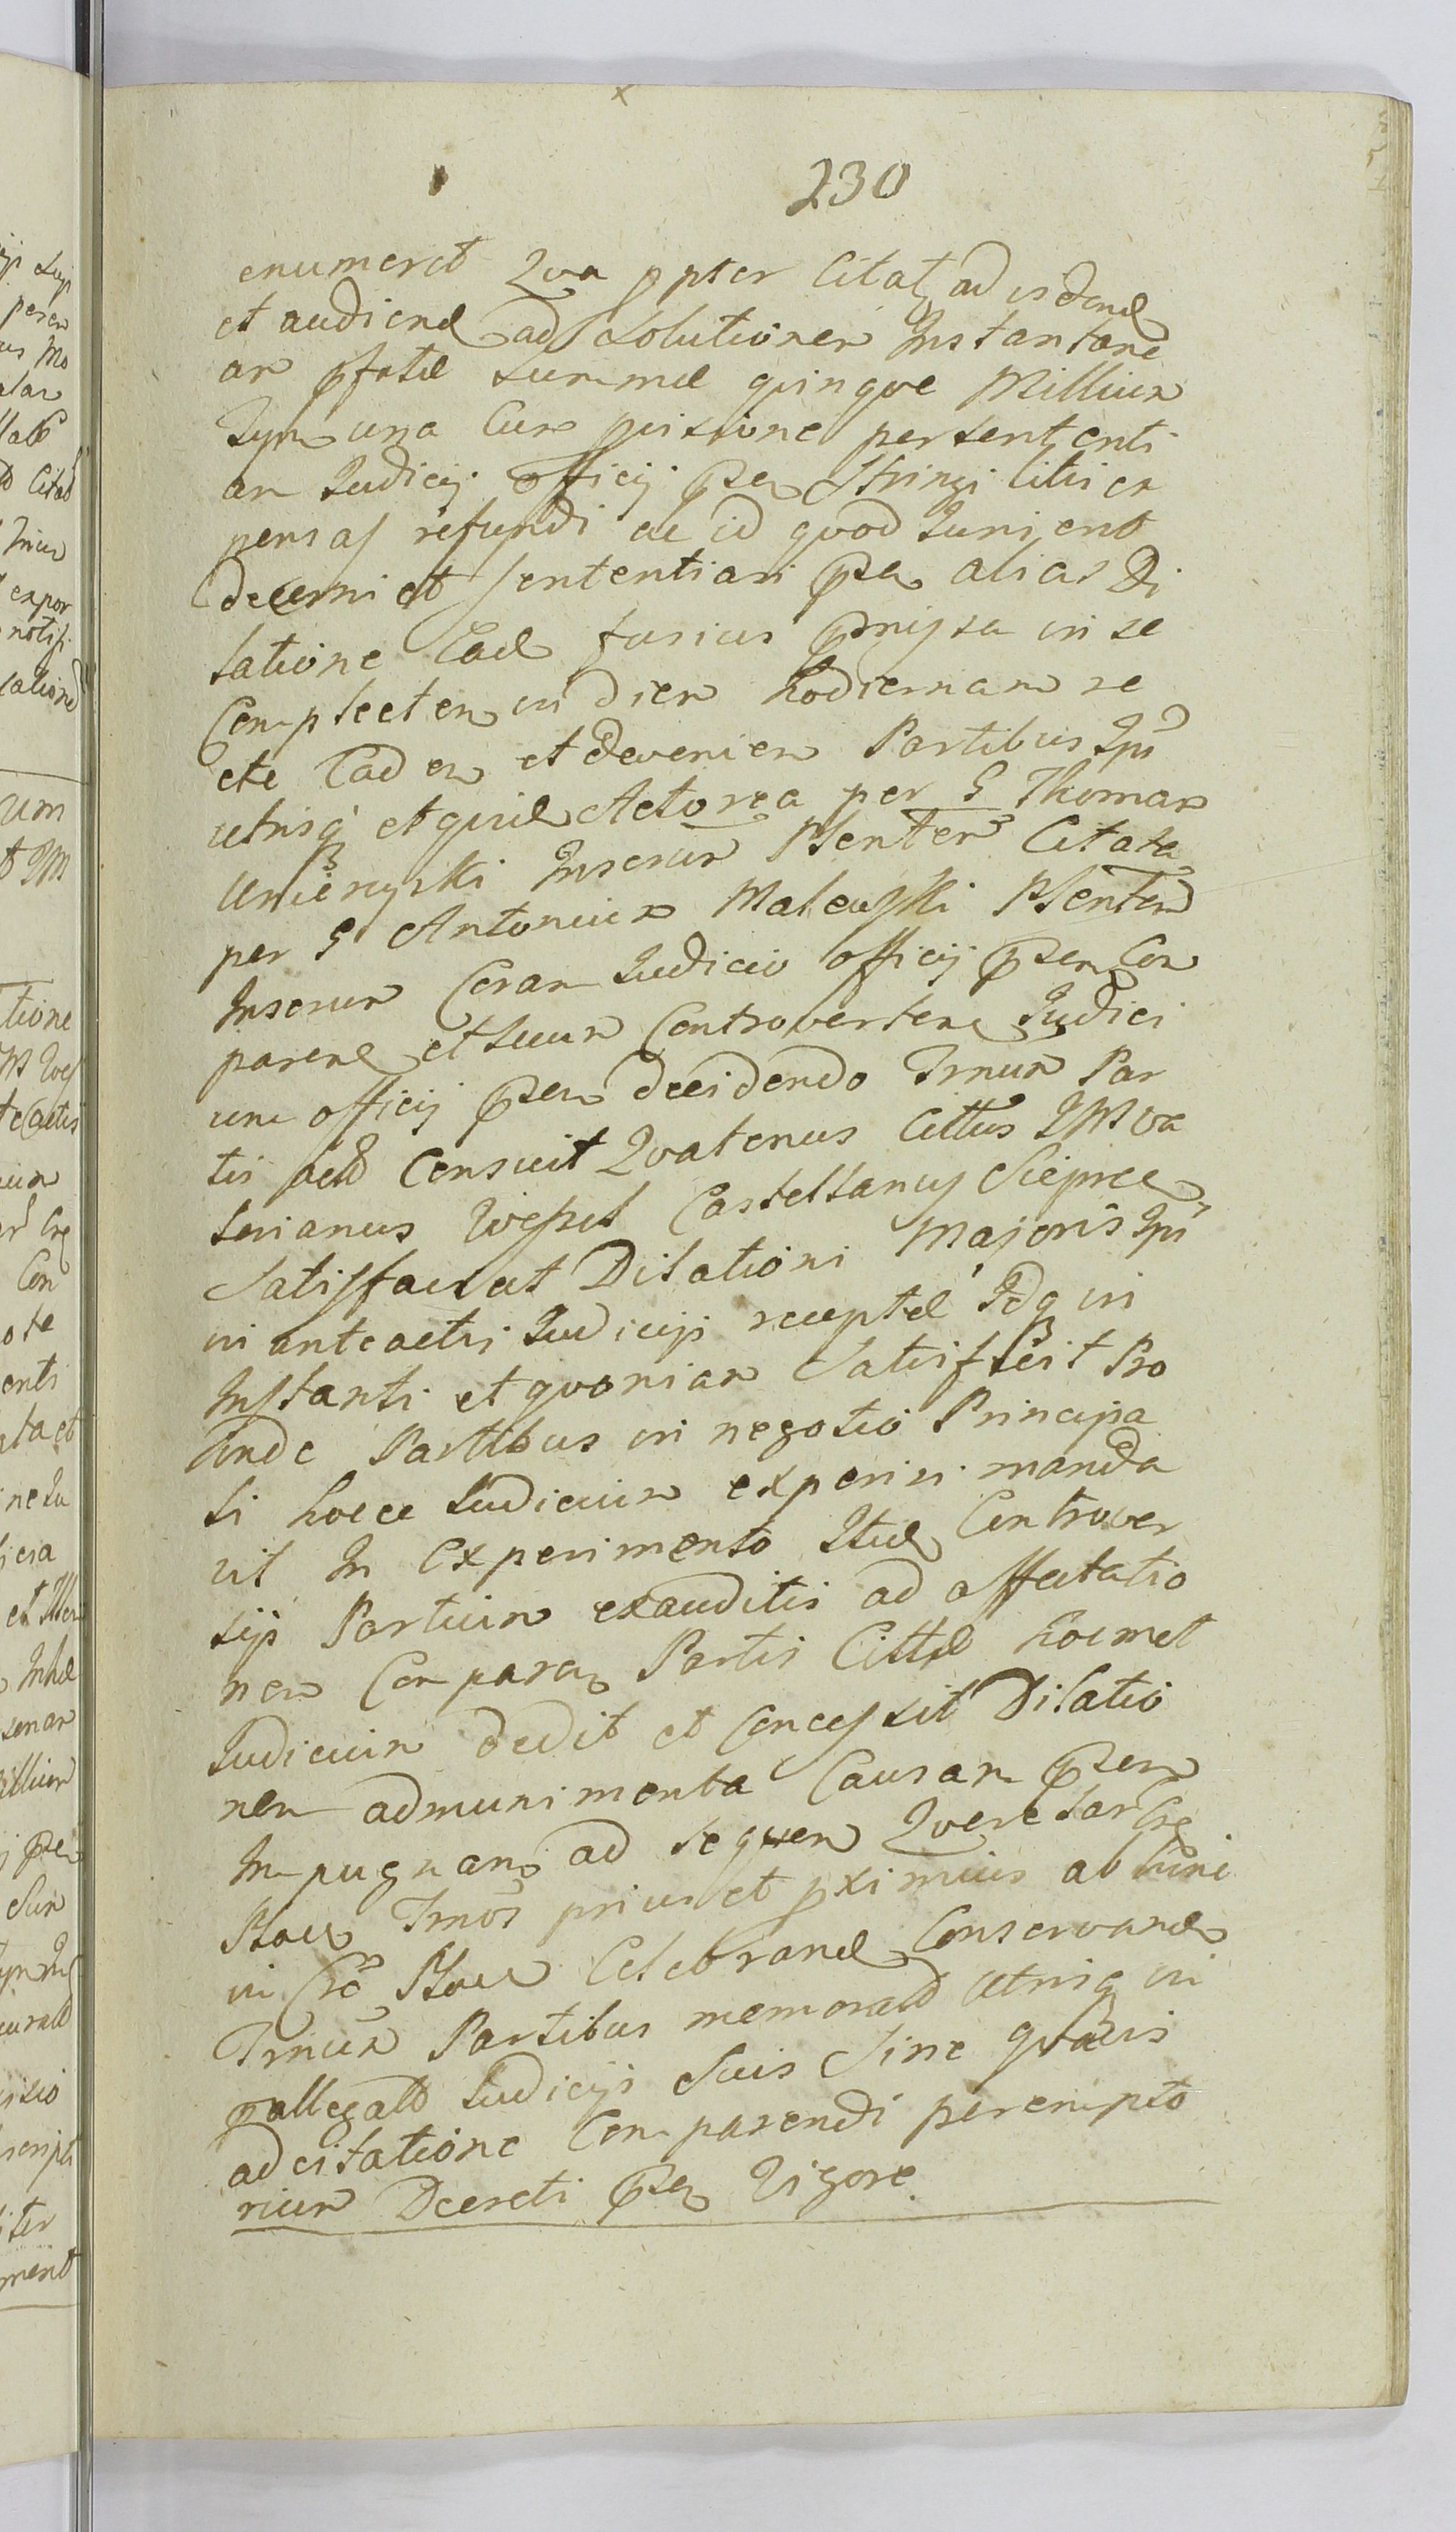 230
enumeret Qva ppter Citat ad vidend
et audiend ad Solutionem Instantane
am pfatæ Summæ qvinqve Millium
una Cum provisione per Sententi
am Judicij officij psen Stringi litis ex
pensas refundi ac id qvod Juri erit
decerni et sententiari psen alias Di
latione Ead fusius præmissa in se
Complecten in diem hodiernam re
cte Caden et devenien Partibus Ipsis
utrisq et qvid Actorea per G Thomam
Umienyski Inserum Plenten Citata
per G Antonium Malewski Plenten
Inserum Coram Judicio officij psen Com
paren et suum Controverten Judici
um officij psen decidendo Trnum Par
tis act Censuit Qvatenus Cittus IM Va
lerianus Wessel Castellanus Sieprcen
Satisfaciat Dilationi Majoris Ipsi
in anteactis Judicijs receptæ Idq in
Instanti et qvoniam Satisfecit Pro
inde Partibus in negotio Principa
li hocce Judicium experiri manda
vit In Experimento Itaq Controver
sijs Partium exauditis ad affectatio
nem Comparen Partis Cittæ hocmet
Judicium dedit et Concessit Dilatio
nem admunimenta Causam psen
Impugnan ad sequen Qverelar Cre
Ploces Trnos prius et pximius ab hinc
in Cre Ploces Celebrand Conservand
Trnum Partibus memorat utrisq in
pallegat Judicijs Suis Sine qvavis
adcitatione Comparendi perempto
rium Decreti psen Vigore